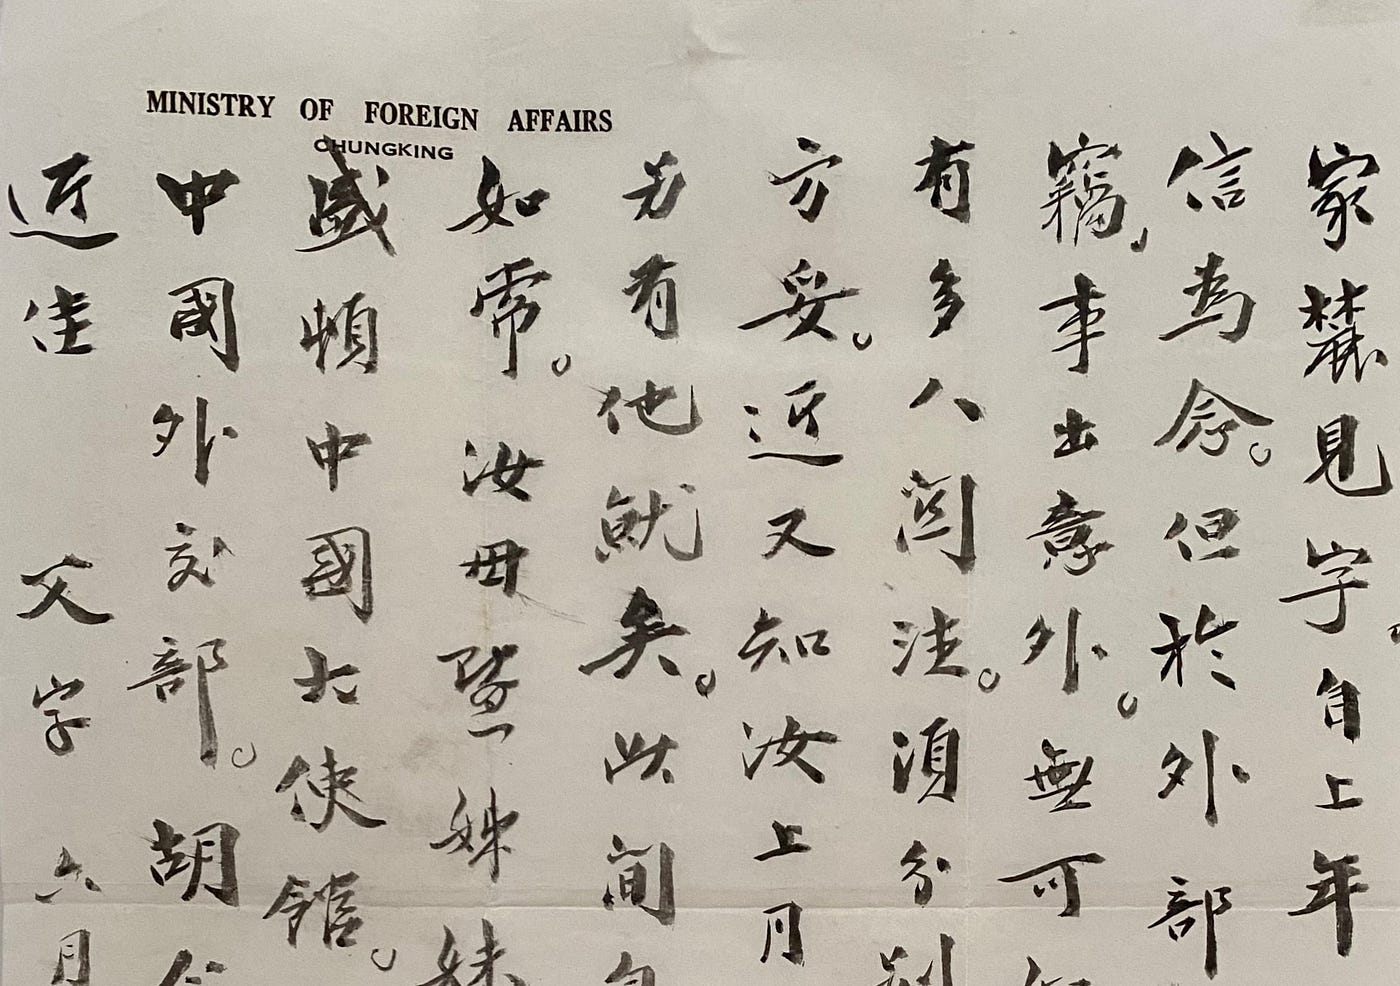 MINISTRY OF FOREIGN AFFAIRS
CHUNGKING
家麓見字自上年
信為念。但於外部
竊，事出意外。無可
有多人関注。須分別
方妥。近又知汝上月
另有他就矣。此間
如常。汝母暨姊妹
盛頓中國大使館。
中國外交部。胡
近佳 父字 六月